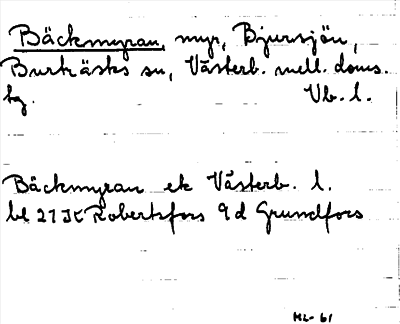 Bäckmyran, myr, Bjursjön,
Burträsks sn, Västerb. mell. doms.
hg. Vb. l.
Bäckmyran ek Västerb. l.
bl 21 K Robertsfors 9d Grundfors
ML-61